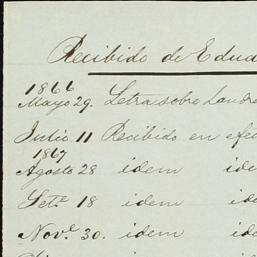 Recibido de Edua
1866
Mayo 29. Letra sobre Londre
Julio 11 Recibido en efe
1867
Agosto 28 idem ide
Set.e 18 idem ide
Nov.e 30. idem ide